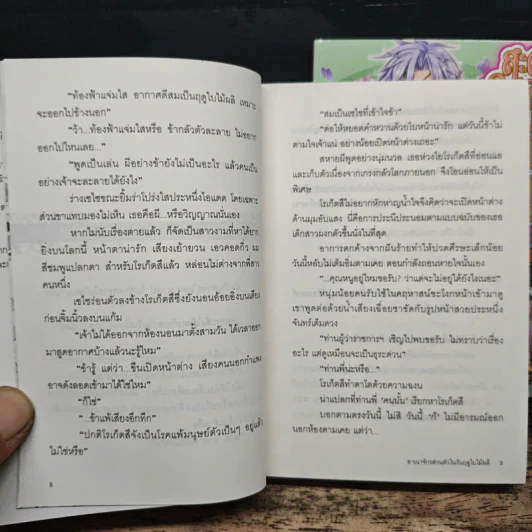 “ท้องฟ้าแจ่มใส อากาศดีสมเป็นฤดูใบไม้ผลิ เหมาะ
จะออกไปข้างนอก”
“ว้า...ท้องฟ้าแจ่มใสหรือ ข้ากลัวตัวละลาย ไม่อยาก
ออกไปไหนเลย...”
“พูดเป็นเล่น ผีอย่างข้ายังไม่เป็นอะไร แล้วคนเป็น
อย่างเจ้าจะละลายได้ยังไง”
ร่างเซโซ่ขณะยิ้มร่าโปร่งใสประหนึ่งไอแดด โดยเฉพาะ
ส่วนขาแทบมองไม่เห็น เธอคือผี...หรือวิญญาณนั่นเอง
หากไม่นับเรื่องตายแล้ว ก็จัดเป็นสาวงามที่หาได้ยาก
ยิ่งบนโลกนี้ หน้าตาน่ารัก เสียงเย้ายวน เอวคอดกิ่ว ผม
สีชมพูแปลกตา สำหรับโรเก็ตสึแล้ว หล่อนไม่ต่างจากพี่สาว
คนหนึ่ง
เซโซ่ร่อนตัวลงข้างโรเก็ตสึซึ่งยังนอนอ้อยอิ่งบนเตียง
ก่อนจิ้มนิ้วลงบนแก้ม
“เจ้าไม่ได้ออกจากห้องนอนมาตั้งสามวัน ได้เวลาออก
มาสูดอากาศบ้างแล้วนะรู้ไหม”
“ข้ารู้ แต่ว่า...ขืนเปิดหน้าต่าง เสียงคนนอกกำแพง
อาจดังลอดเข้ามาได้ใช่ไหม”
“ก็ใช่”
“...ข้าแพ้เสียงอึกทึก”
“ปกติโรเก็ตสึจังเป็นโรคแพ้มนุษย์ตัวเป็นๆ อยู่แล้ว
ไม่ใช่หรือ”
8
“สมเป็นเซโซ่ที่เข้าใจข้า”
“ต่อให้หยอดคำหวานด้วยใบหน้าน่ารัก แต่วันนี้ข้าไม่
ตามใจเจ้าแน่ อย่างน้อยเปิดหน้าต่างเถอะ”
สหายผีพูดอย่างนุ่มนวล เธอห่วงใยโรเก็ตสึที่อ่อนแอ
และเก็บตัวเนื่องจากเกรงกลัวโลกภายนอก จึงโอนอ่อนให้เป็น
พิเศษ
โรเก็ตสึไม่อยากหักหาญน้ำใจจึงคิดว่าจะเปิดหน้าต่าง
ด้านมุมอับแสง นี่คือการประนีประนอมตามแบบฉบับของเธอ
เด็กสาวผงกตัวขึ้นนั่งในที่สุด
อาการตกค้างจากฝันร้ายทำให้ปวดศีรษะเล็กน้อย
วันนี้หลับไม่เต็มอิ่มตามเคย ตอนกำลังถอนหายใจนั้นเอง
“...คุณหนูอยู่ไหมขอรับ? ว่าแต่จะไม่อยู่ได้ยังไงเนอะ”
หนุ่มน้อยคนรับใช้ในคฤหาสน์ชะโงกหน้าเข้ามาดู
เขาพูดต่อด้วยน้ำเสียงเฉื่อยชาขัดกับรูปหน้าสวยประหนึ่ง
จันทร์เต็มดวง
“ท่านผู้ว่าราชการฯ เชิญไปพบขอรับ ไม่ทราบว่าเรื่อง
อะไร แต่ดูเหมือนจะเป็นธุระด่วน”
“ท่านพี่น่ะหรือ...”
โรเก็ตสึทำตาโตด้วยความฉงน
น่าแปลกที่ท่านพี่ ‘คนนั้น’ เรียกหาโรเก็ตสึ
บอกตามตรงวันนี้ ไม่สิ วันนี้ ‘ก็’ ไม่มีอารมณ์ออก
นอกห้องตามเคย แต่ว่า...
9